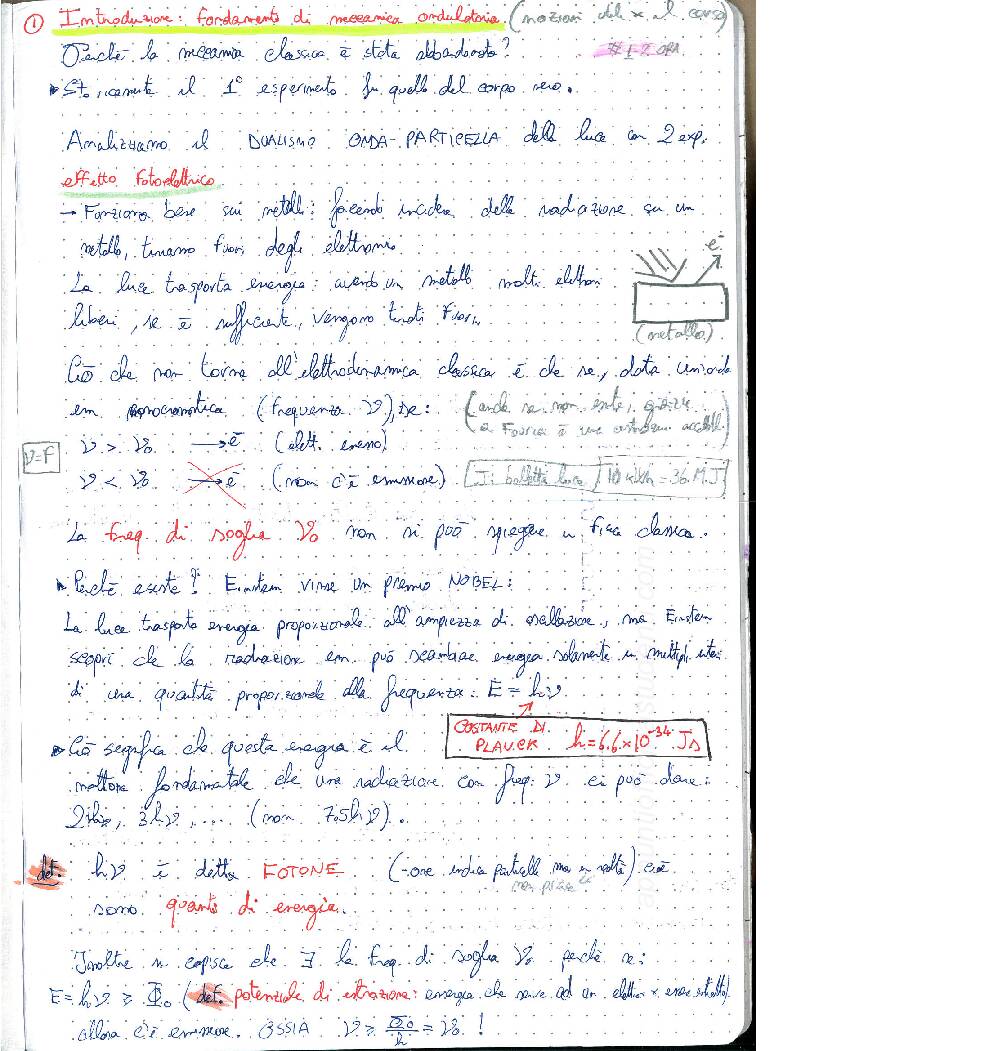 ① Introduzione: fondamenti di meccanica ondulatoria (nozioni utili x il corso)
Perché la meccanica classica è stata abbandonata? #1-2 ORA
Storicamente il 1° esperimento fu quello del corpo nero.
Analizziamo il DUALISMO ONDA-PARTICELLA della luce con 2 exp.
effetto fotoelettrico
→ Funziona bene sui metalli: facendo incidere della radiazione su un
metallo, tiriamo fuori degli elettroni. e⁻
La luce trasporta energia: avendo un metallo molti elettroni
liberi, se è sufficiente, vengono tirati fuori.
(metallo)
Ciò che non torna all'elettrodinamica classica è che se, data un'onda
em monocromatica (frequenza ν), se: (anche se non esiste, grazie
a Fourier è una astrazione accettab.)
ν=f
ν > ν₀ → e⁻ (elett. emesso)
ν < ν₀ → e⁻ (non c'è emissione) In bolletta luce 10 kWh = 36 MJ
La freq. di soglia ν₀ non si può spiegare in fisica classica.
Perché esiste? Einstein vinse un premio NOBEL:
La luce trasporta energia proporzionale all'ampiezza di oscillazione, ma Einstein
scoprì che la radiazione em può scambiare energia solamente in multipli interi
di una quantità proporzionale alla frequenza: E = hν
COSTANTE DI
PLANCK h=6,6×10⁻³⁴ Js
Ciò significa che questa energia è il
mattone fondamentale che una radiazione con freq. ν ci può dare:
2hν, 3hν, .... (non 7,5hν).
def. hν è detta FOTONE (-one indica particelle, ma in realtà) cioè
sono quanti di energia.
Inoltre si capisce che ∃ la freq. di soglia ν₀ perché se:
E = hν ≥ Φ₀ (def. potenziale di estrazione: energia che serve ad un elettron x essere estratto)
allora c'è emissione. OSSIA ν ≥ Φ₀/h = ν₀ !